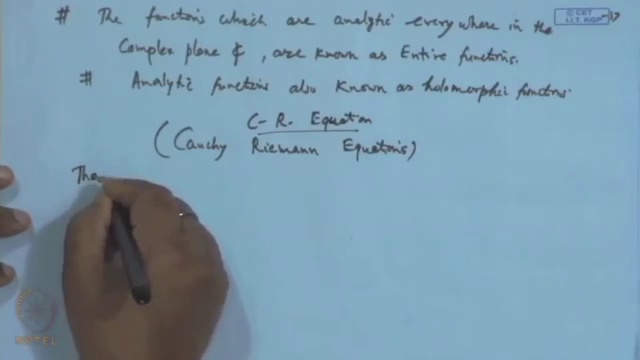 # The functions which are analytic everywhere in the
Complex plane ₵, are known as Entire functions.
# Analytic functions also known as holomorphic functions.
C-R. Equation
(Cauchy Riemann Equations)
The
© CET
I.I.T. KGP
NPTEL